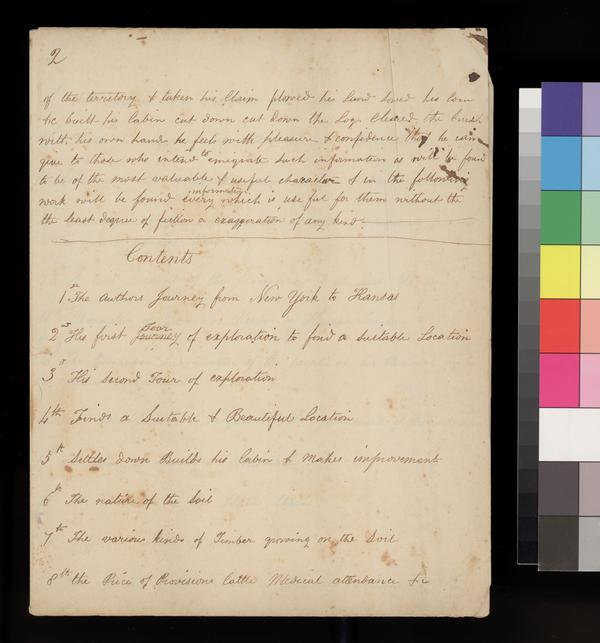 2
of the territory & taken his Claim plowed his land sowed his corn
&c built his Cabin cut down cut down the Logs Cleared the brush
with his own hand he feels with pleasure & confidence that he can
give to those who intend to emigrate such information as will be found
to be of the most valuable & useful character & in the following
work will be found every information which is useful for them without the
the least degree of fiction or exaggeration of any kind.
Contents
1st The Authors Journey from New York to Kansas
2nd His first Journey Tour of exploration to find a Suitable Location
3d His Second Tour of exploration
4th Finds a Suitable & Beautiful Location
5th Settles down Builds his Cabin & Makes improvement
6th The nature of the Soil
7th The various kinds of Timber growing on the Soil
8th the Price of Provisions Cattle Medical attendance &c